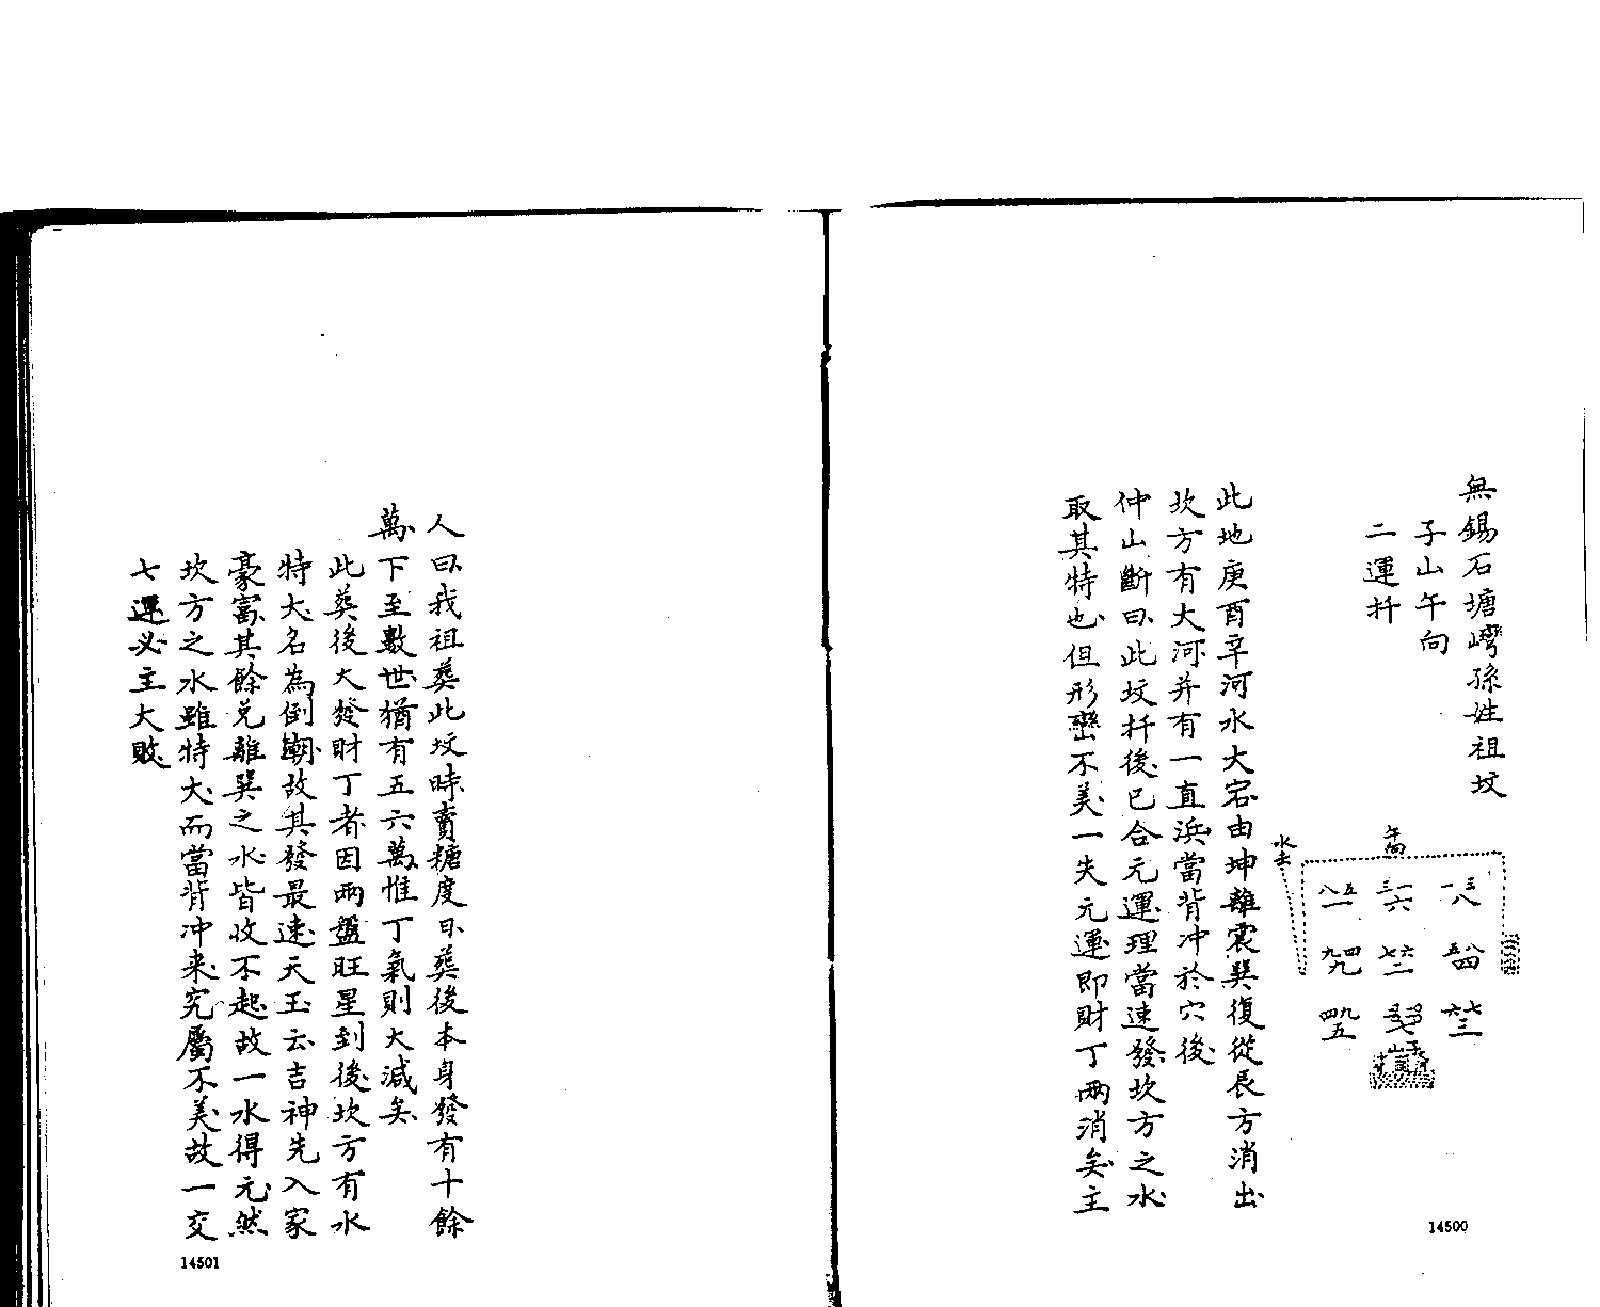 無錫石塘嶴孫姓祖坟
子山午向
二運扦
午向
水去
一三 三一 八五
八 六 一
五八 七六 九四
四 二 九
六七 四九
三 七 五
子山
此地庚酉辛河水大宕由坤離震巽復從艮方消出
坎方有大河并有一直浜當背冲於穴後
仲山斷曰此坟扦後已合元運理當速發坎方之水
取其特也但形巒不美一失元運即財丁兩消矣主
人曰我祖葬此坟時賣糖度日葬後本身發有十餘
萬下至數世猶有五六萬惟丁氣則大減矣
此葬後大發財丁者因兩盤旺星到後坎方有水
特大名為倒潮故其發最速天玉云吉神先入家
豪富其餘兌離巽之水皆收不起故一水得元然
坎方之水雖特大而當背冲來究屬不美故一交
七運必主大敗
14500
14501